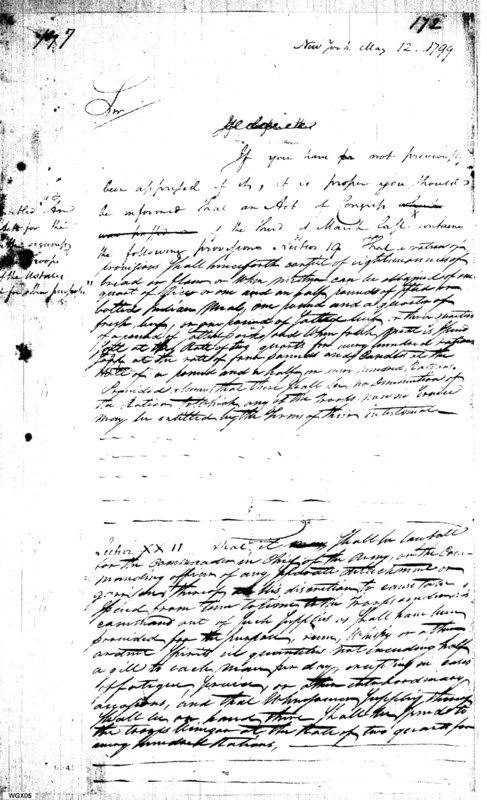 172
New York May 12. 1799
Sir
If you have not previously
been apprised of it, it is proper you should
be informed that an Act of Congress
of the third of March last contains
the following provisions Section 19 That a ration of
provisions shall henceforth consist of eighteen ounces of
bread or flour or when neither can be obtained of one
quart of rice or one and an half pounds of sifted or
bolted Indian Meal, one pound and a quarter of
fresh beef, or one pound of salted beef, or three quarters
of a pound of salted pork, and when fresh meat is issued
salt at the rate of two quarts for every hundred rations
Soap at the rate of four pounds and Candles at the
rate of a pound and a half for every hundred rations
Provided always that there shall be no diminution of
the Ration to which any of the troops now in
may be entitled by the terms of their enlistment
"entitled "An
Act for the
organising
Troops
of the U States
& for other purposes"
Section XXII That it shall be lawfull
for the Commander in Chief of the Army, or the Com
manding officer of any seperate detachment or
garrison thereof at his discretion to cause to be is
sued from time to time to the troops under his
command out of such supplies as shall have been
provided for the purpose, rum, Whisky or other
ardent Spirits in quantities not exceeding half
a gill to each man per day, excepting in cases
of fatigue, service, or other extraordinary
occasions, and that whensoever supplies thereof
shall be on hand there shall be issued to
the troops vinegar at the rate of two quarts for
every hundred Rations,
WGX05